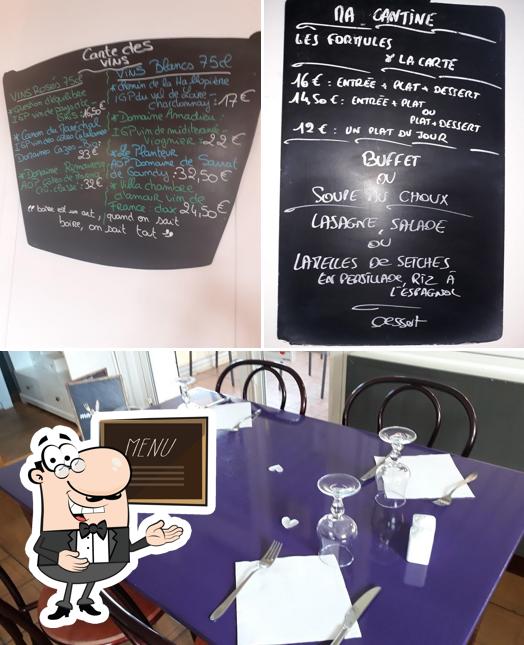 Carte des
VINS
VINS Rosés 75cl
IGP vin de pays de
GRIS : 16,50€
23€
AOP côtes de
32€
VINS Blancs 75cl
chemin de la
IGP du val de Loire
chardonnay : 17€
*Domaine Amadieu :
IGP vin de méditerranée
Viognier : 22€
*Le Planteur
AOP Domaine de Sarrat
de Goundy : 32,50€
*Villa chambre
d'amour vin de
France : 24,50€
"boire est un art, quand on sait
boire, on sait tout"
MA CANTINE
LES FORMULES
& LA CARTE
16€ : ENTRÉE + PLAT + DESSERT
14,50€ : ENTRÉE + PLAT
OU
PLAT + DESSERT
12€ : UN PLAT DU JOUR
BUFFET
OU
SOUPE AU CHOUX
LASAGNE, SALADE
OU
DE SEICHES
EN PERSILLADE, RIZ À
L'ESPAGNOL
Dessert
MENU